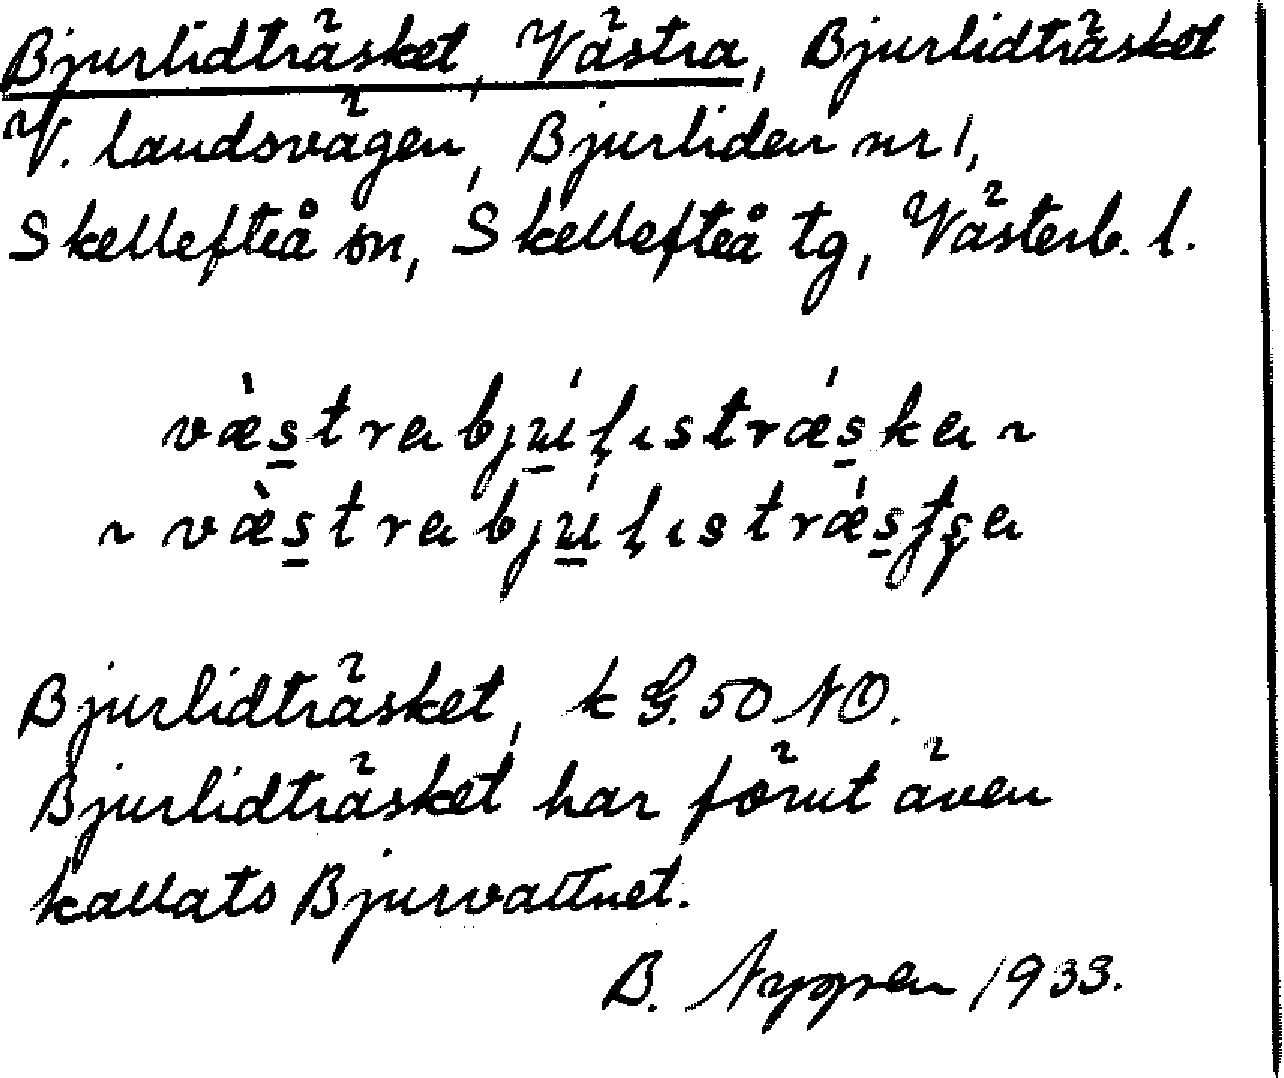 Bjurlidträsket, Västra, Bjurlidträsket
V. landsvägen, Bjurliden nr 1,
Skellefteå sn, Skellefteå tg, Västerb. l.
væ̀s̲trabjú̲ḷıstrǽs̲ka ~
~ væ̀s̲trabjú̲ḷıstrǽs̲tʂa
Bjurlidträsket, k G. 50 NO.
Bjurlidträsket har förut även
kallats Bjurvattnet.
B. Nygren 1933.